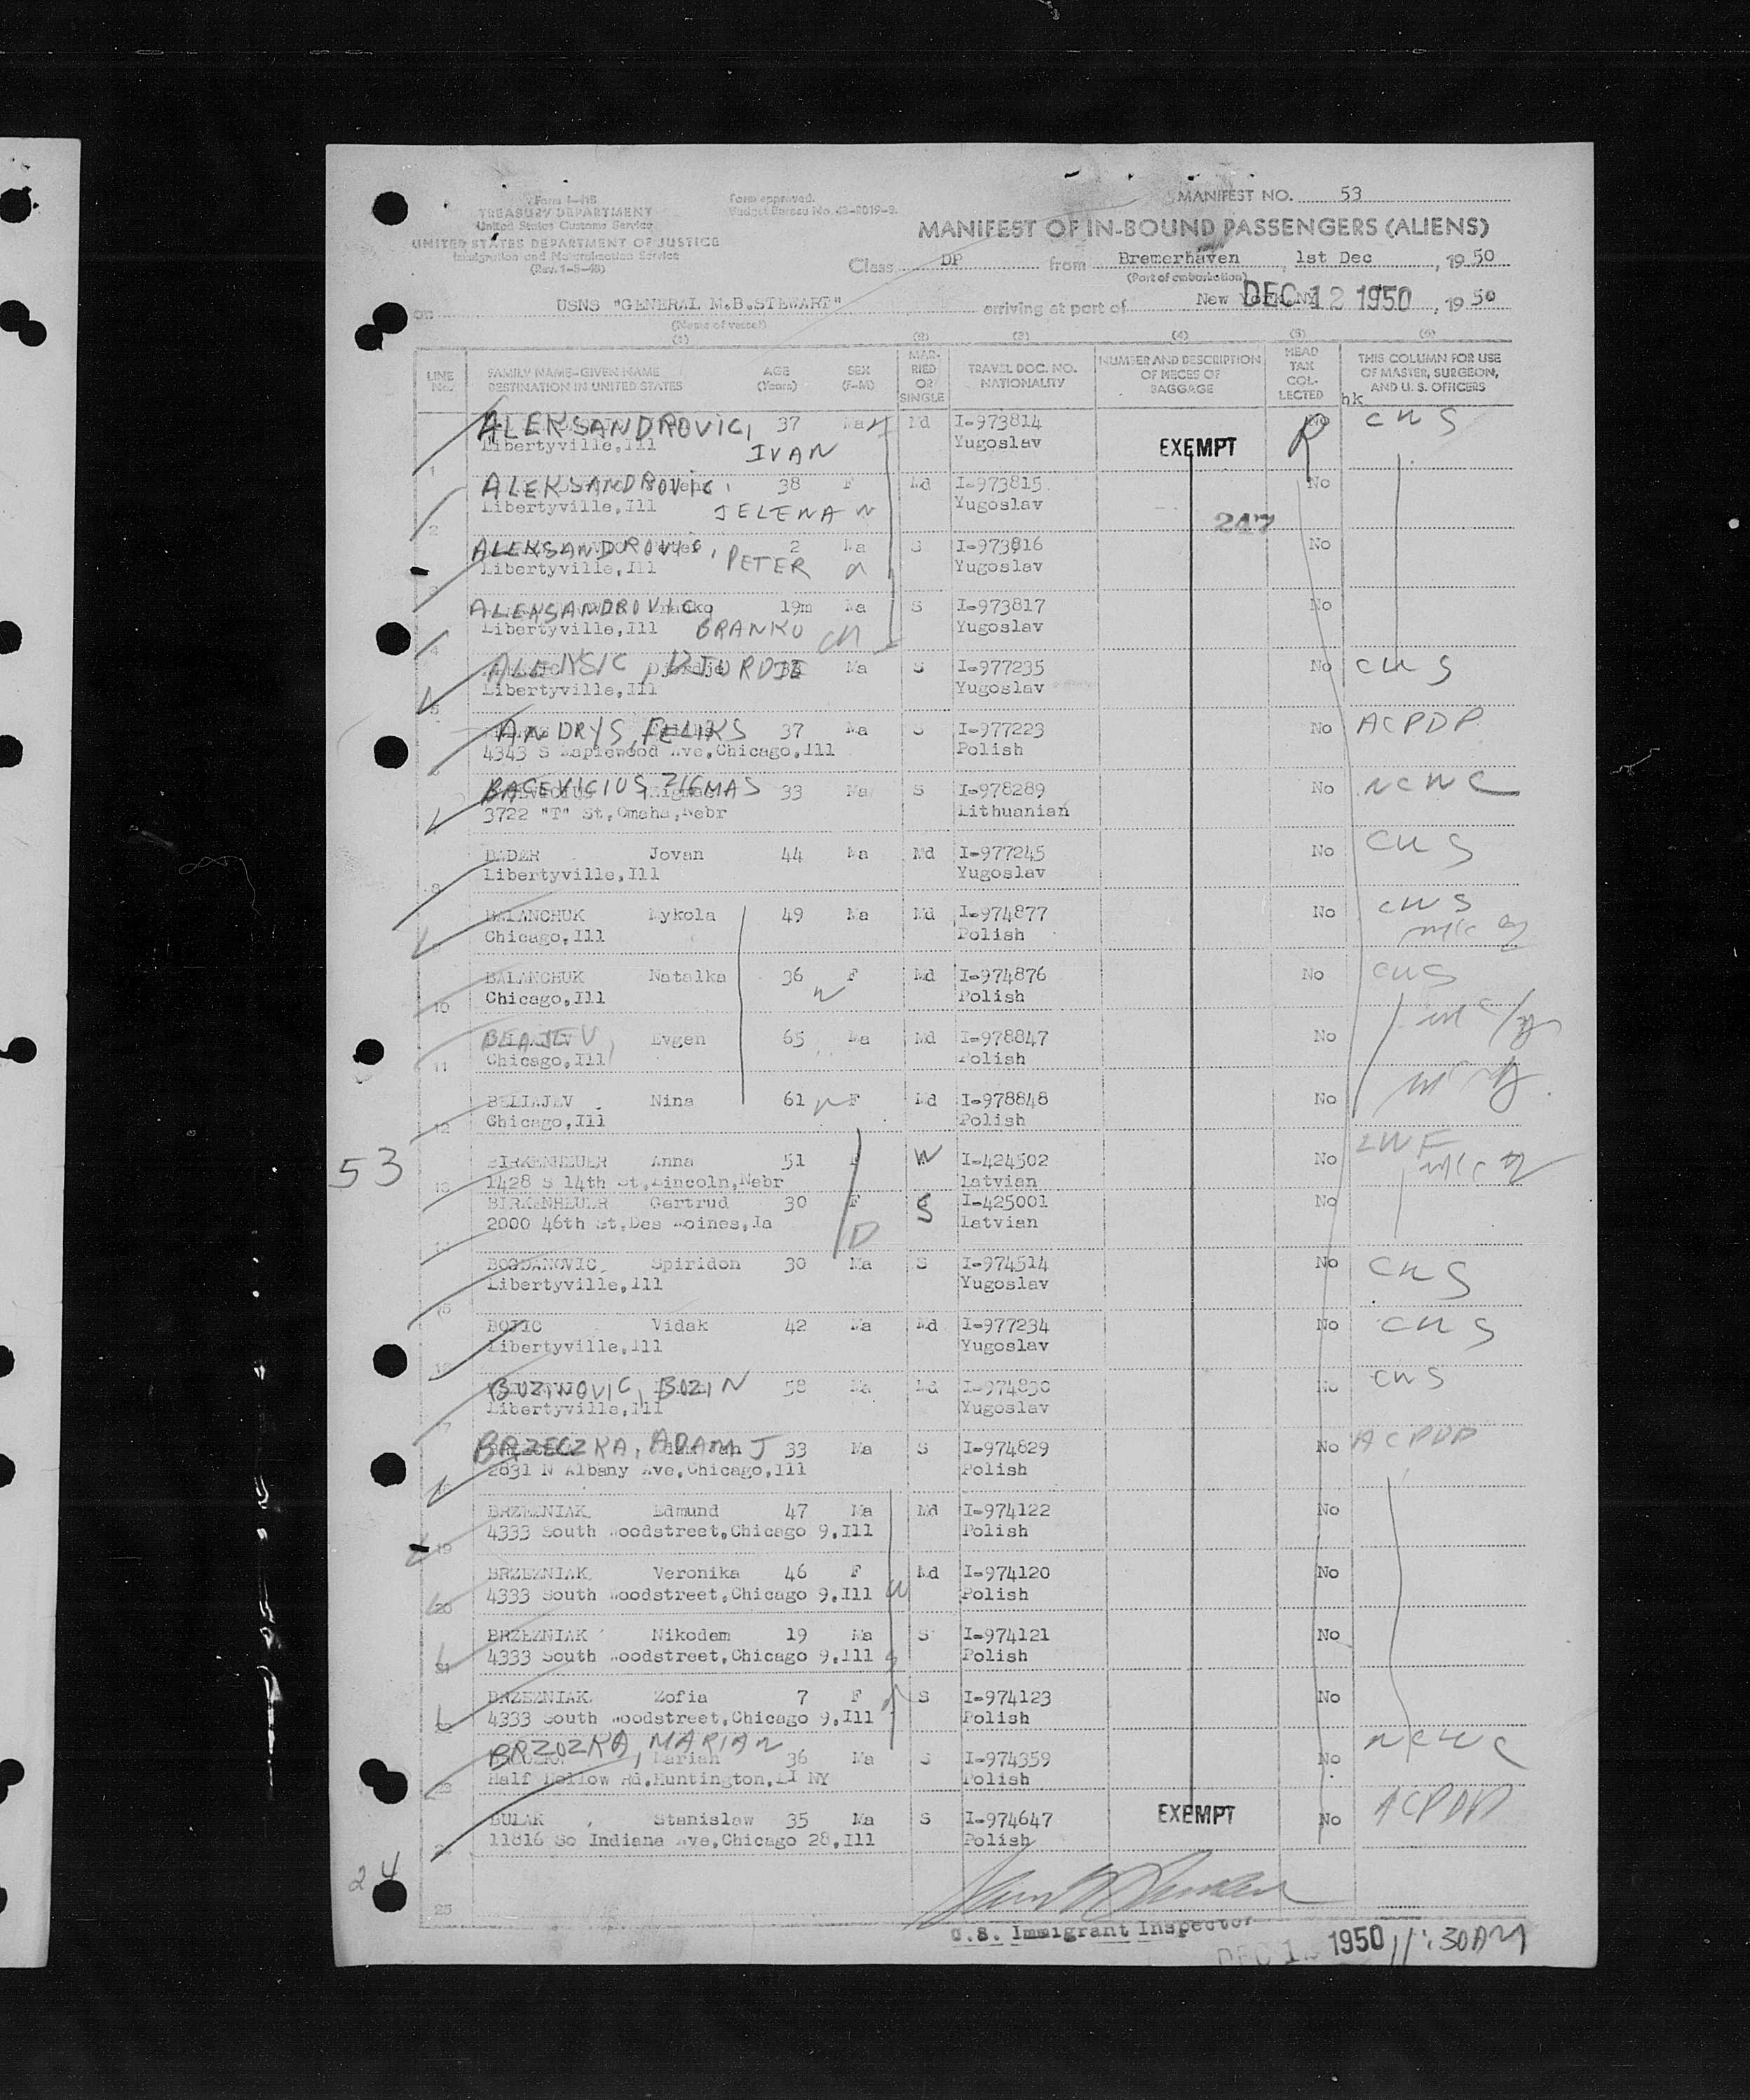 MANIFEST NO. 53
Form I-418
TREASURY DEPARTMENT
United States Customs Service
UNITED STATES DEPARTMENT OF JUSTICE
Immigration and Naturalization Service
(Rev. 1-5-48)
Form approved.
Budget Bureau No. 43-R019-2.
MANIFEST OF IN-BOUND PASSENGERS (ALIENS)
Class DP from Bremerhaven, 1st Dec, 1950
(Port of embarkation)
on USNS "GENERAL M.B.STEWART" arriving at port of New York,NY DEC 12 1950, 1950
(Name of vessel)
(1) (2) (3) (4) (5) (6)
LINE No. FAMILY NAME-GIVEN NAME DESTINATION IN UNITED STATES AGE (Years) SEX (F-M) MARRIED OR SINGLE TRAVEL DOC. NO. NATIONALITY NUMBER AND DESCRIPTION OF PIECES OF BAGGAGE HEAD TAX COLLECTED THIS COLUMN FOR USE OF MASTER, SURGEON, AND U. S. OFFICERS
hk
ALEKSANDROVIC, 37 Ma Md I-973814 No CWS
Libertyville,Ill IVAN Yugoslav EXEMPT R
1
ALEKSANDROVIC, 38 F Md I-973815 No
Libertyville,Ill JELENA W Yugoslav
2 247
ALEKSANDROVIC, 2 Ma S I-973816 No
Libertyville,Ill PETER Yugoslav
3
ALEKSANDROVIC, 19m Ma S I-973817 No
Libertyville,Ill BRANKO Yugoslav
4
ALEKSIC, DJURDJE Ma S I-977235 No CWS
Libertyville,Ill Yugoslav
5
ANDRYS, FELIKS 37 Ma S I-977223 No ACPDP
4343 S Maplewood Ave,Chicago,Ill Polish
6
BACEVICIUS, ZIGMAS 33 Ma S I-978289 No NCWC
3722 "T" St,Omaha,Nebr Lithuanian
7
BADER Jovan 44 Ma Md I-977245 No CWS
Libertyville,Ill Yugoslav
8
BALANCHUK Mykola 49 Ma Md I-974877 No CWS
Chicago,Ill Polish
9
BALANCHUK Natalka 36 F Md I-974876 No CWS
Chicago,Ill W Polish
10
BELAJEV, Evgen 65 Ma Md I-978847 No
Chicago,Ill Polish
11
BELIAJEV Nina 61 W F Md I-978848 No
Chicago,Ill Polish
12
53
BIRKENHEUER Anna 51 F W I-424502 No LWF
1428 S 14th St,Lincoln,Nebr Latvian
13
BIRKENHEUER Gertrud 30 F S I-425001 No
2000 46th St,Des Moines,Ia D Latvian
14
BOGDANOVIC Spiridon 30 Ma S I-974514 No CWS
Libertyville,Ill Yugoslav
15
BOJIC Vidak 42 Ma Md I-977234 No CWS
Libertyville,Ill Yugoslav
16
BOZINOVIC, BOZIN 58 Ma Md I-974830 No CWS
Libertyville,Ill Yugoslav
17
BRZECZKA, ADAM J 33 Ma S I-974829 No ACPDP
2831 N Albany Ave,Chicago,Ill Polish
18
BRZEZNIAK Edmund 47 Ma Md I-974122 No
4333 South Woodstreet,Chicago 9,Ill Polish
19
BRZEZNIAK Veronika 46 F Md I-974120 No
4333 South Woodstreet,Chicago 9,Ill W Polish
20
BRZEZNIAK Nikodem 19 Ma S I-974121 No
4333 South Woodstreet,Chicago 9,Ill Polish
21
BRZEZNIAK Zofia 7 F S I-974123 No
4333 South Woodstreet,Chicago 9,Ill Polish
22
BRZOZKA, MARIAN 36 Ma S I-974359 No NCWC
Half Hollow Rd,Huntington,LI NY Polish
23
BULAK Stanislaw 35 Ma S I-974647 EXEMPT No ACPDP
11816 So Indiana Ave,Chicago 28,Ill Polish
24
24
25
U.S. Immigrant Inspector
DEC 12 1950 11:30AM